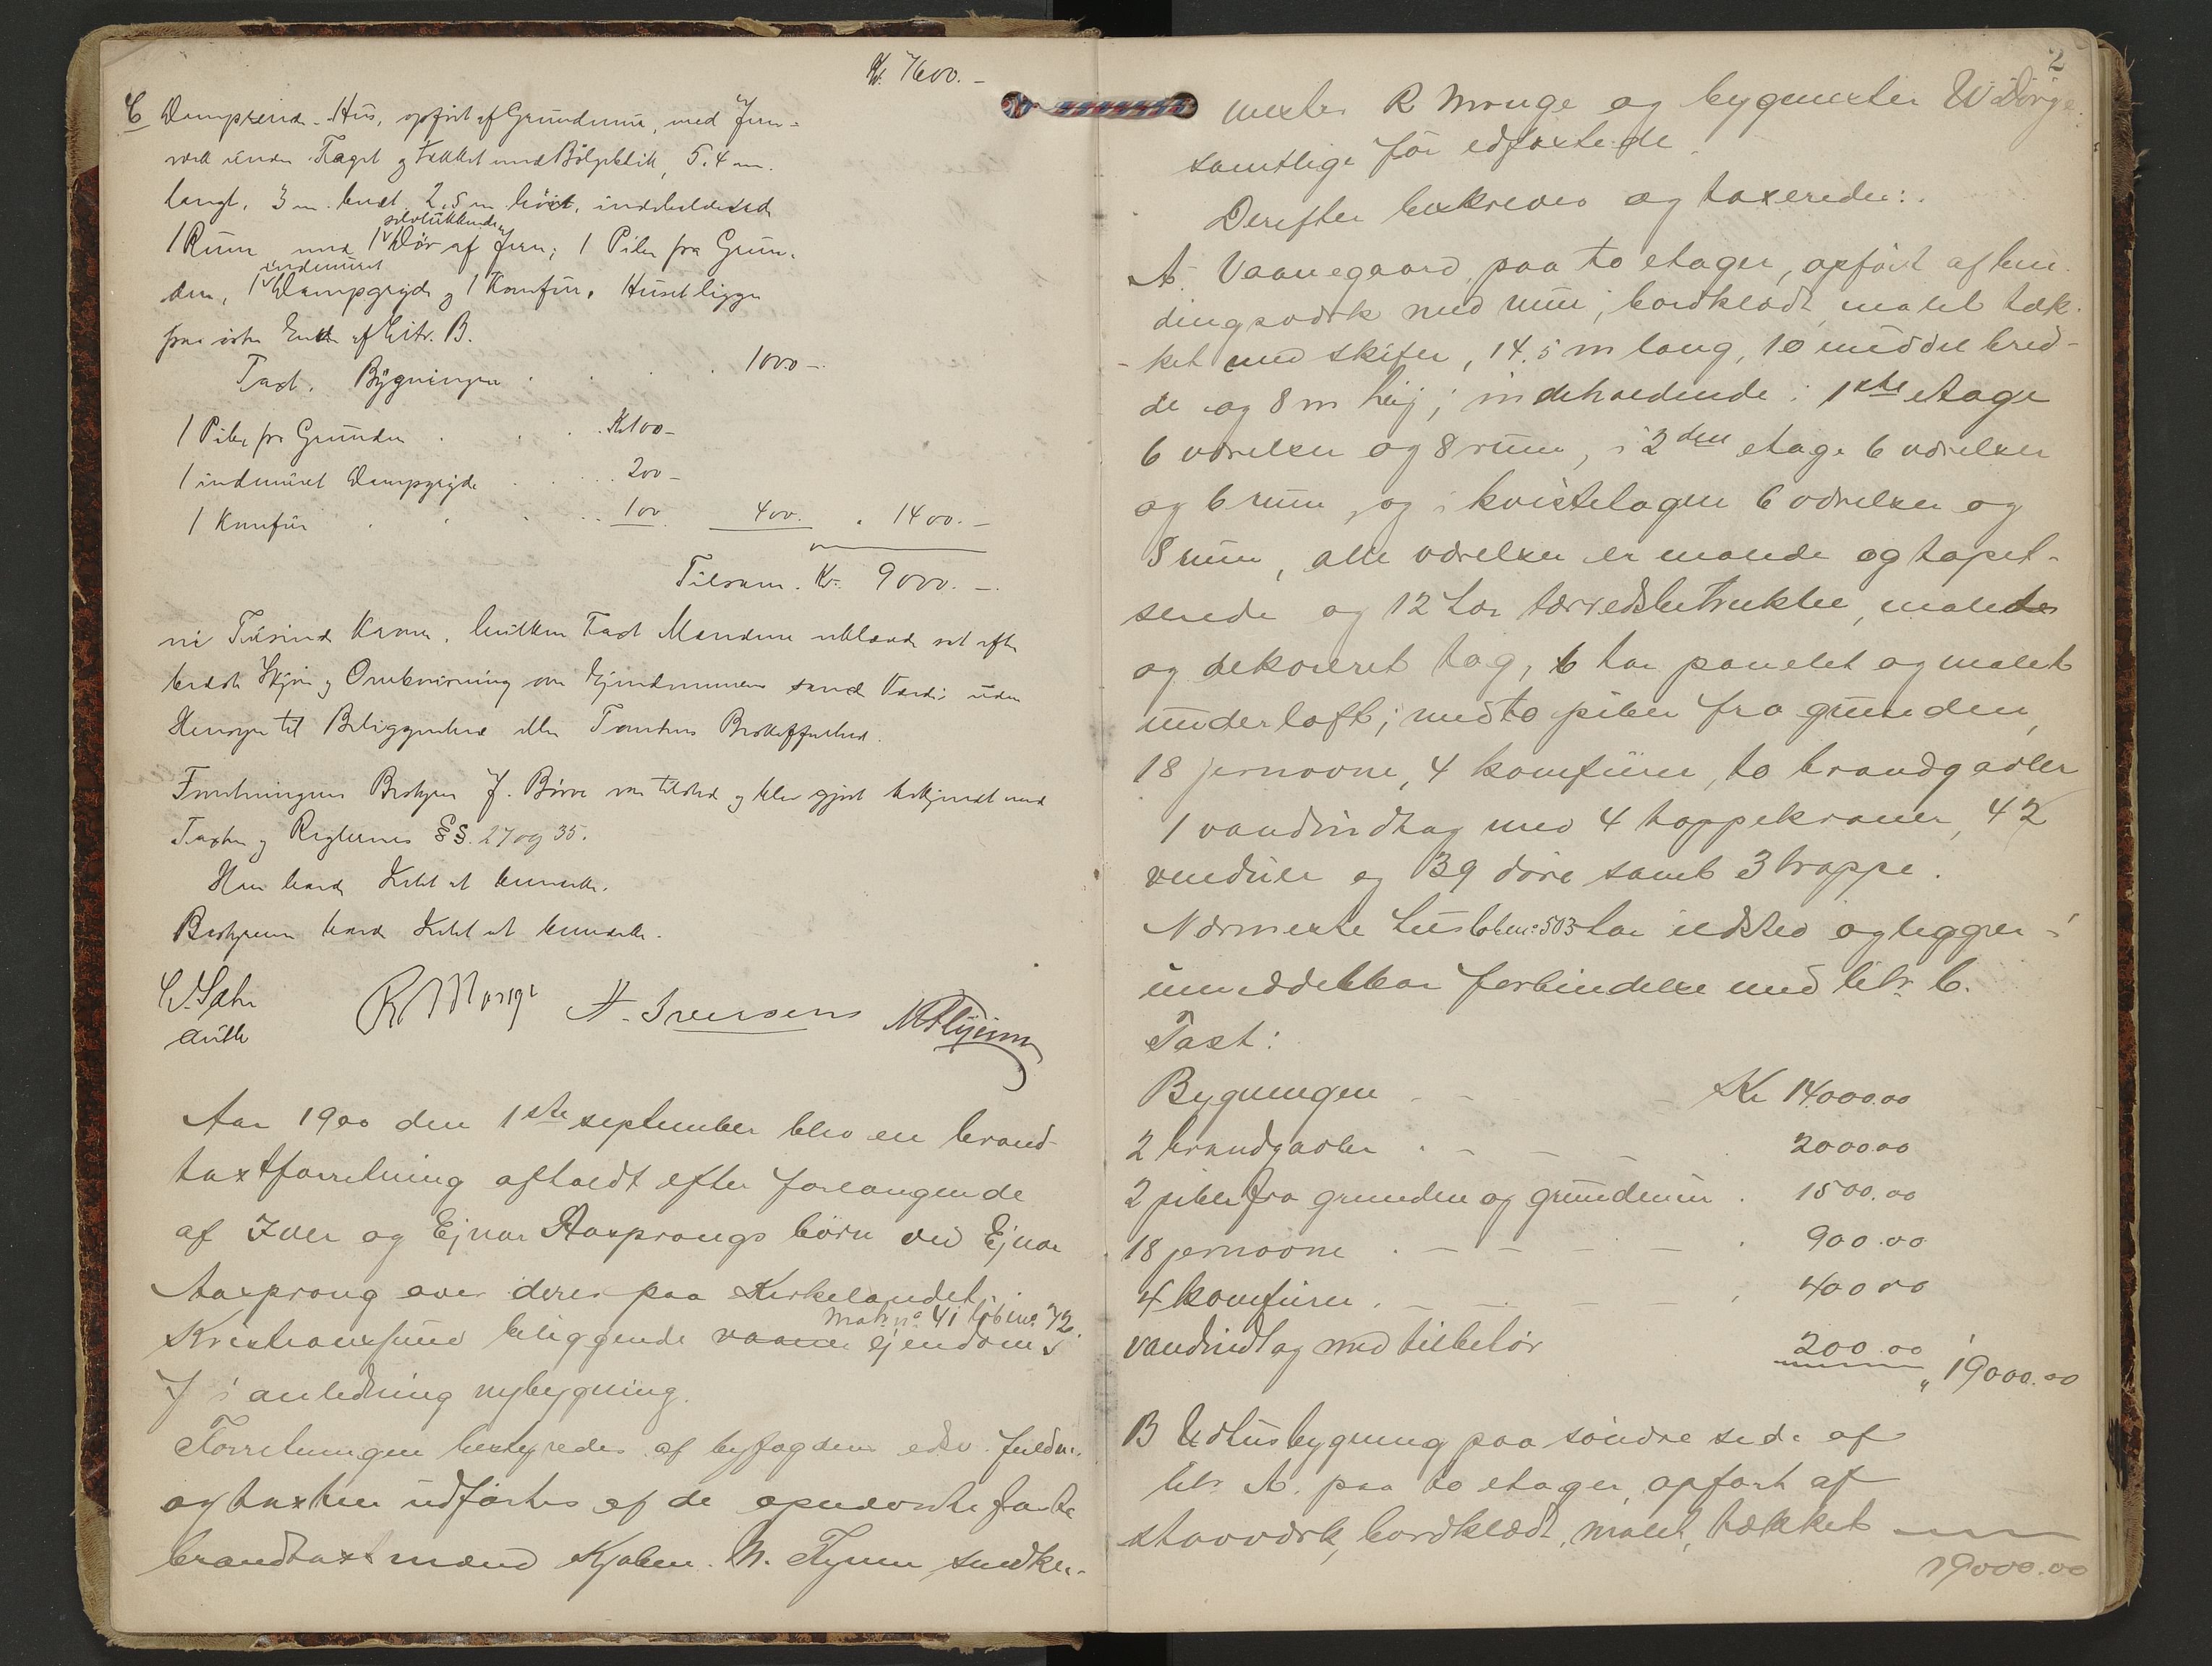 Kr. 7600.-
C Dampkende-Hus, opført af Grundmur, med Jern-
værk under Taget og tækket med Bølgeblik, 5.4 m.
langt, 3 m. bredt, 2,5 m høit, indeholdende
selvlukkende
1 Rum med 1 Dør af Jern; 1 Pibe fra Grun-
indmuret
den, 1 Dampgryde og 1 Komfur. Huset ligger
paa østre Ende af Litr. B.
Taxt. Bygningen . . . . 1000-.
1 Pibe fra Grunden . . . Kr 100-
1 indmuret Dampgryde . . . 200-
1 Komfur . . . . 100 400. " 1400.-
Tilsam. Kr. 9000.-.
ni Tusinde Kroner, hvilken Taxt Mændene erklærede sat efter
bedste Skjøn og Overbevisning om Ejendommens sande Værdi uden
Hensyn til Beliggenhed eller Tomtens Beskaffenhed.
Forretningens Bestyrer J. Börve var tilsted og blev gjort bekjendt med
Taxten og Reglernes §§ 27 og 35.
Han havde Intet at bemærke.
Bestyreren havde Intet at bemærke.
R Mønge A. Iversens
Aar 1900 den 1ste september blev en brand-
taxtforretning afholdt efter forlangende
af Iver og Ejnar Aasprongs børn ved Ejnar
Aasprong over deres paa Kirkelandet i
Matr no 41 løbeno 72.
Kristiansund beliggende vaane ejendom
i anledning nybygning.
Forretningen bestyredes af byfogdens edsv. fuldm.
og taxten udførtes af de opnævnte faste
brandtaxtmænd Kjøbm. N. Flyum snedker-
2
mester R Mønge og bygmester W Dörje
samtlige før edfæstede.
Derefter beskreves og taxeredes:
A. Vaanegaard, paa to etager, opført af bin-
dingsværk med mur, bordklædt, malet tæk-
ket med skifer, 14.5 m lang, 10 middel bred-
de og 8 m høj; indeholdende i 1ste etage
6 værelser og 8 rum, i 2den etage 6 værelser
og 6 rum, og i kvistetagen 6 værelser og
8 rum, alle værelser er malede og tapet-
serede og 12 har lærredsbetrukket, malede
og dekoreret tag, 6 har panelet og malet
underloft; med to piber fra grunden,
18 jernovne, 4 komfurer, to brandgavler
1 vandindtag med 4 tappekraner, 42
vinduer og 39 døre samt 3 trapper.
Nærmeste hus løbeno 503 har ildsted og ligger i
umiddelbar forbindelse med litr. C.
Taxt:
Bygningen - - - Kr 14000.00
2 brandgavler . - - - 2000.00
2 piber fra grunden og grundmur . 1500.00
18 jernovne . - - - - . 900.00
4 komfurer . - - - . 400 00
vandindtag med tilbehør 200.00 " 19000.00
B Udhusbygning paa søndre side af
litr A. paa to etager, opført af
stavværk, bordklædt, malet, tækket
19000.00